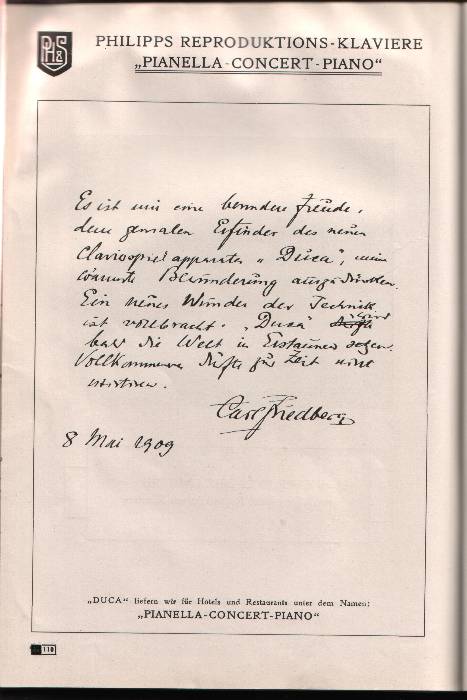 PHS
PHILIPPS REPRODUKTIONS-KLAVIERE
„PIANELLA-CONCERT-PIANO“
Es ist mir eine besondere Freude,
dem genialen Erfinder des neuen
Clavierspiel apparates „Duca“, meine
wärmste Bewunderung auszudrücken.
Ein neues Wunder der Technik
ist vollbracht. „Duca“ wird
bald die Welt in Erstaunen setzen.
Vollkommeneres dürfte zur Zeit nicht
existiren.
Carl Friedberg
8 Mai 1909
„DUCA“ liefern wir für Hotels und Restaurants unter dem Namen:
„PIANELLA-CONCERT-PIANO“
110